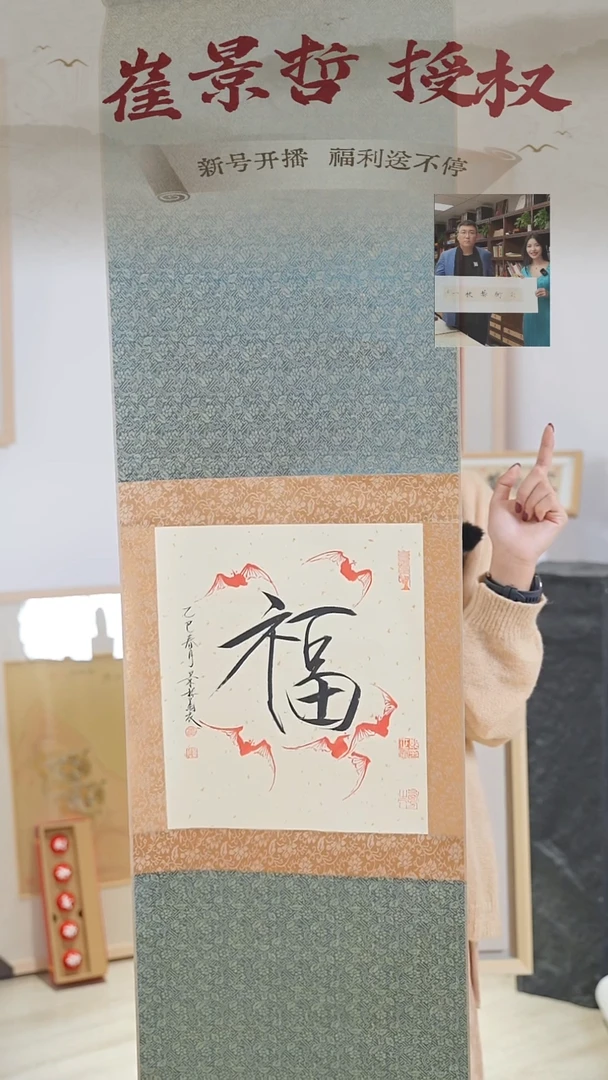 崔景哲 授权
新号开播 福利送不停
福
乙巳春月